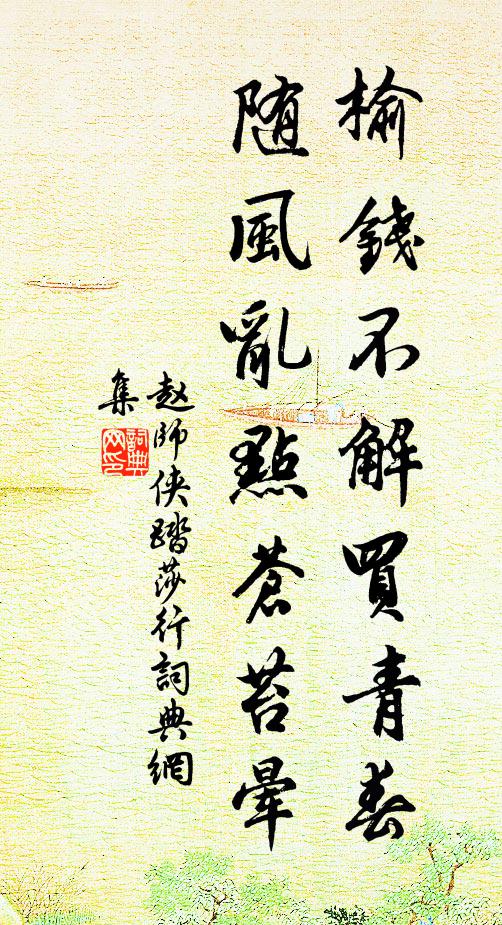 榆錢不解買青春
随風亂點蒼苔暈
赵師侠踏莎行詞典網
集
詞典
网印